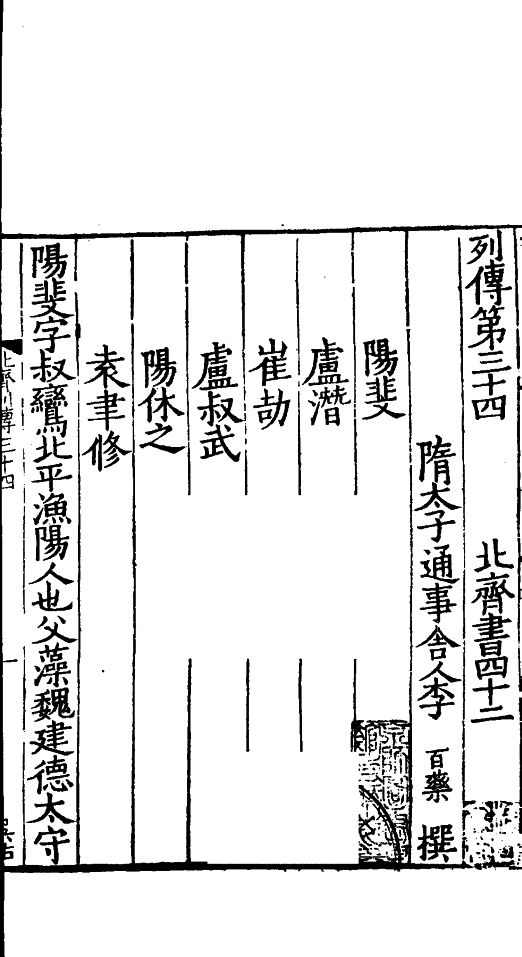 列傳第三十四 北齊書四十二
隋太子通事舎人李 百藥 撰
陽斐
盧潛
崔劼
盧叔武
陽休之
袁聿修
陽斐字叔鸞北平漁陽人也父藻魏建德太守
北齊列傳三十四 一